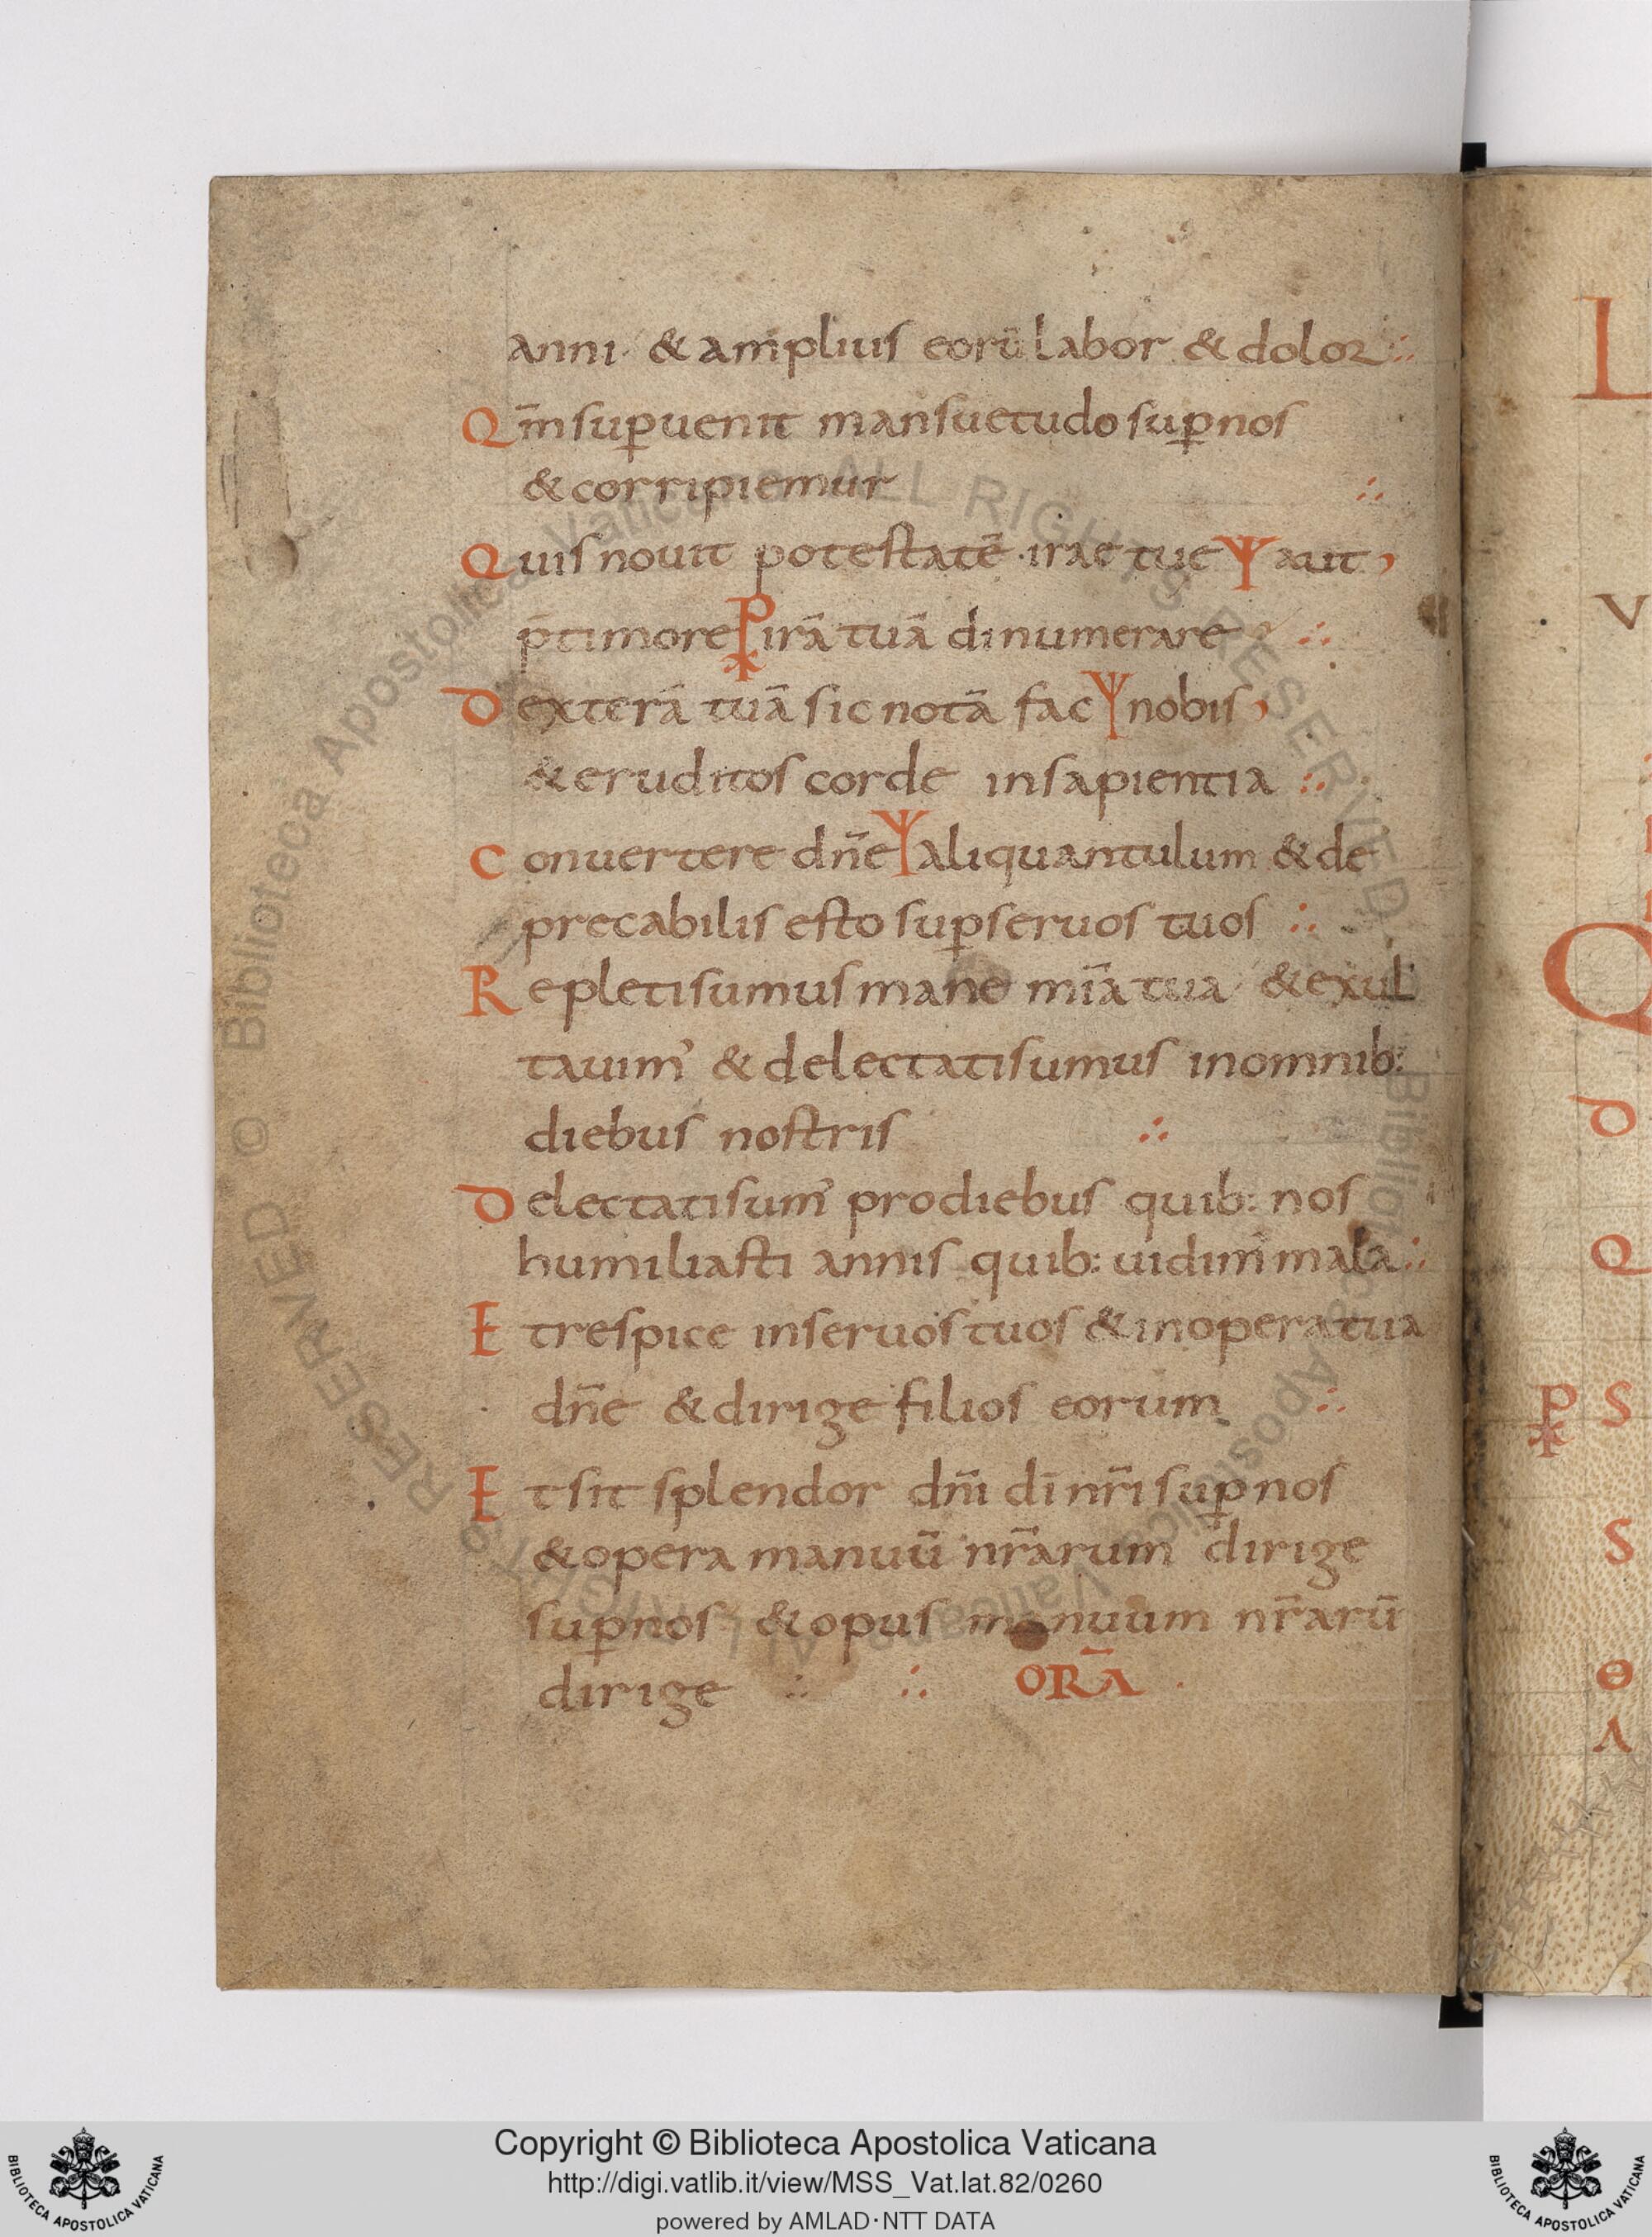 anni· & amplius eorū labor & doloꝛ ∴
Qm̄ sup̱uenit mansuetudo sup̱nos
& corripiemur ∴
Quis nouit potestatē irae tue Ψ aut
p̄timore ⳩ irā tuā dinumerare ∴
Dexterā tuā sic notā fac Ψ nobis
& eruditos corde insapientia ∴
Conuertere dn̄e Ψ aliquantulum & de
precabilis esto sup̱seruos tuos ∴
Repletisumus mane mīa tua & exul
tauim' & delectatisumus inomnib:
diebus nostris ∴
Delectatisum' prodiebus quib: nos
humiliasti annis quib: uidim' mala ∴
Et respice inseruos tuos & inopera tua
dn̄e & dirige filios eorum ∴
Et sit splendor dn̄i dī nr̄i sup̱nos
& opera manuū nr̄arum dirige
sup̱nos & opus manuum nr̄arū
dirige ∴ ∴ ORĀ
L
V
Q
D
Q
⳩ S
S
Θ
Λ
© Biblioteca Apostolica Vaticana ALL RIGHTS RESERVED
Copyright © Biblioteca Apostolica Vaticana
http://digi.vatlib.it/view/MSS_Vat.lat.82/0260
powered by AMLAD·NTT DATA
BIBLIOTECA APOSTOLICA VATICANA
BIBLIOTECA APOSTOLICA VATICANA